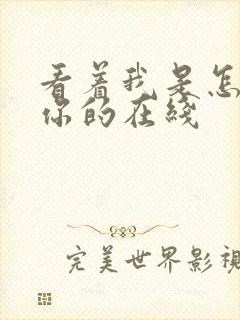 看着我是怎
你的在线
完美世界影视